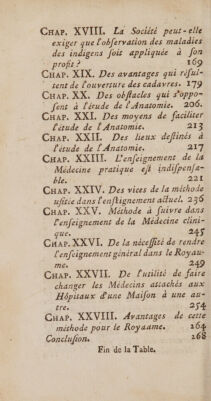 CHAP. XVIII. La Société peut-elle
exiger que l'observation des maladies
des indigens soit appliquée à son
profit ? 169
CHAP. XIX. Des avantages qui résul-
tent de l'ouverture des cadavres. 179
CHAP. XX. Des obstacles qui s'oppo-
sent à l'étude de l'Anatomie. 206.
CHAP. XXI. Des moyens de faciliter
l'étude de l'Anatomie. 213
CHAP. XXII. Des lieux destinés à
l'étude de l'Anatomie. 217
CHAP. XXIII. L'enseignement de la
Médecine pratique est indispensa-
ble. 221
CHAP. XXIV. Des vices de la méthode
usitée dans l'enseignement actuel. 236
CHAP. XXV. Méthode à suivre dans
l'enseignement de la Médecine clini-
que. 245
CHAP. XXVI. De la nécessité de rendre
l'enseignement général dans le Royau-
me. 249
CHAP. XXVII. De l'utilité de faire
changer les Médecins attachés aux
Hôpitaux d'une Maison à une au-
tre. 254
CHAP. XXVIII. Avantages de cette
méthode pour le Royaume. 264
Conclusion. 268
Fin de la Table.